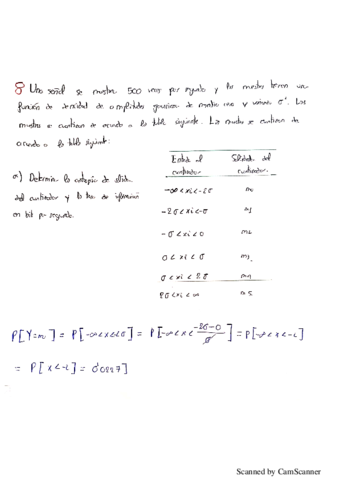 8 Una señal se muestra 500 veces por segundo y las muestras tienen una
función de densidad de amplitudes gaussiana de media cero y varianza σ². Las
muestras se cuantizan de acuerdo a la tabla siguiente. Las muestras se cuantizan de
acuerdo a la tabla siguiente:
a) Determina la entropía de salida
del cuantizador y la tasa de información
en bit por segundo.
Entrada al cuantizador Salida del cuantizador
-∞<xi<-2σ m0
-2σ<xi<-σ m1
-σ<xi<0 m2
0<xi<σ m3
σ<xi<2σ m4
2σ<xi<∞ m5
P[Y=m] = P[-∞<x<2σ] = P[-∞<x<(-2σ-0)/σ] = P[-∞<x<-2]
= P[x<-2] = 0'0227]
Scanned by CamScanner